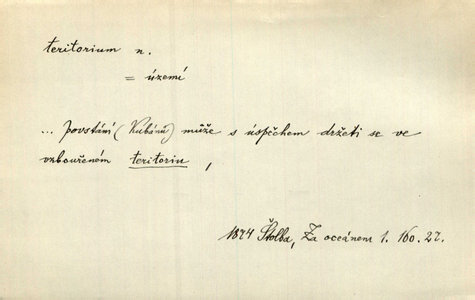 teritorium n.
= území
... povstání (Kubánů) může s úspěchem držeti se ve
vzbouřeném teritoriu ,
1874 Štolba, Za oceánem 1. 160. 27.